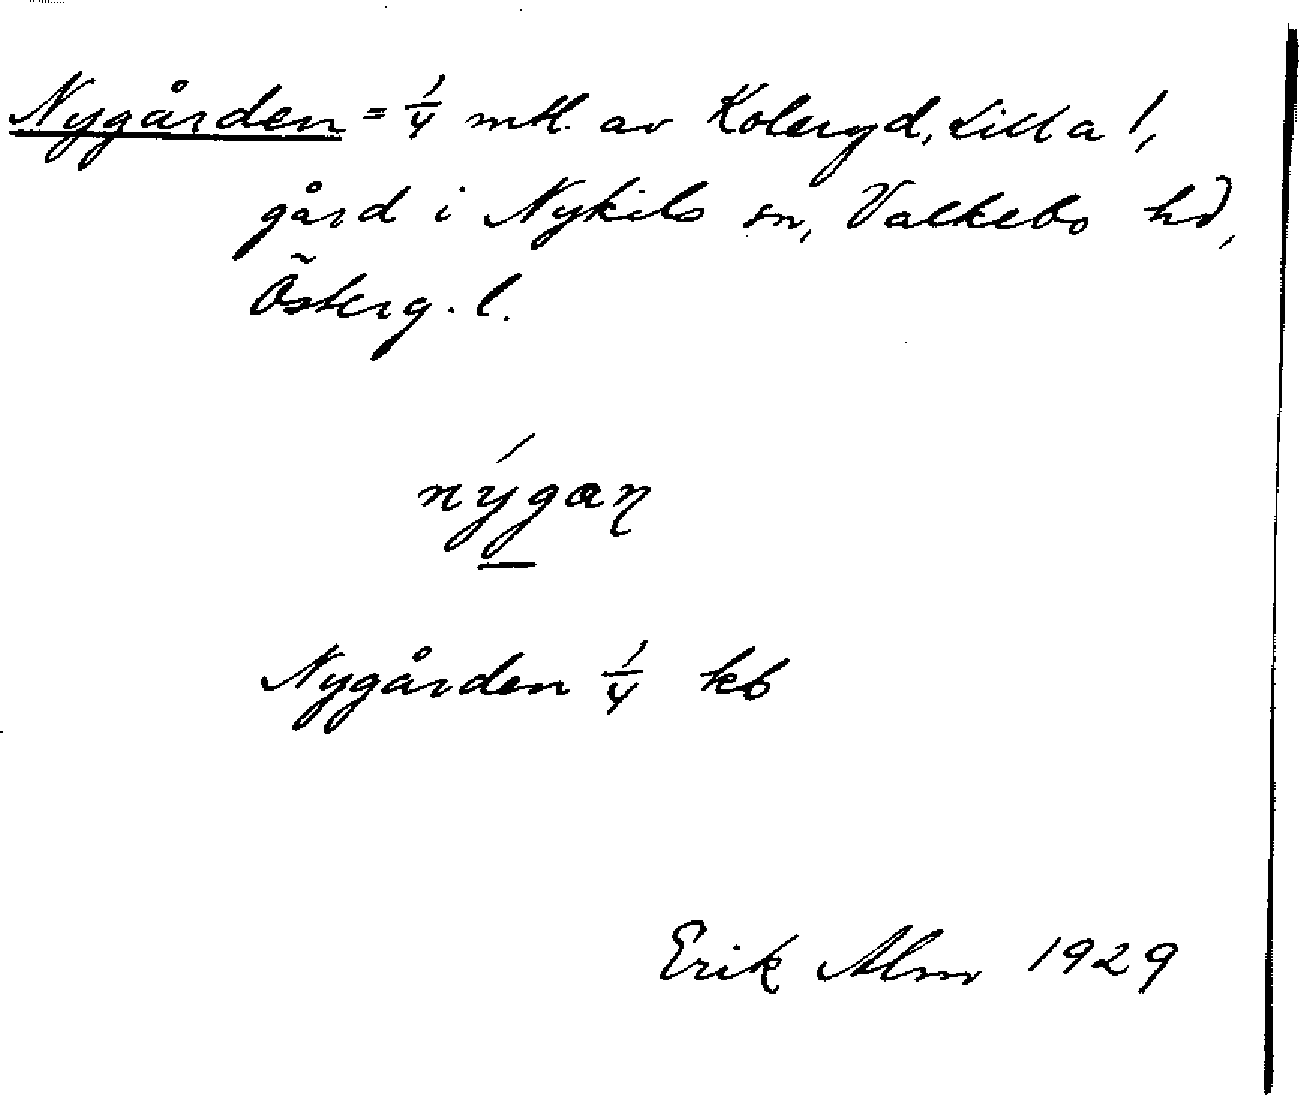 Nygården = 1/4 mtl. av Koleryd, Lilla 1,
gård i Nykils sn, Valkebo hd,
Österg. l.
nýgaɳ
Nygården 1/4 kb
Erik Alm 1929